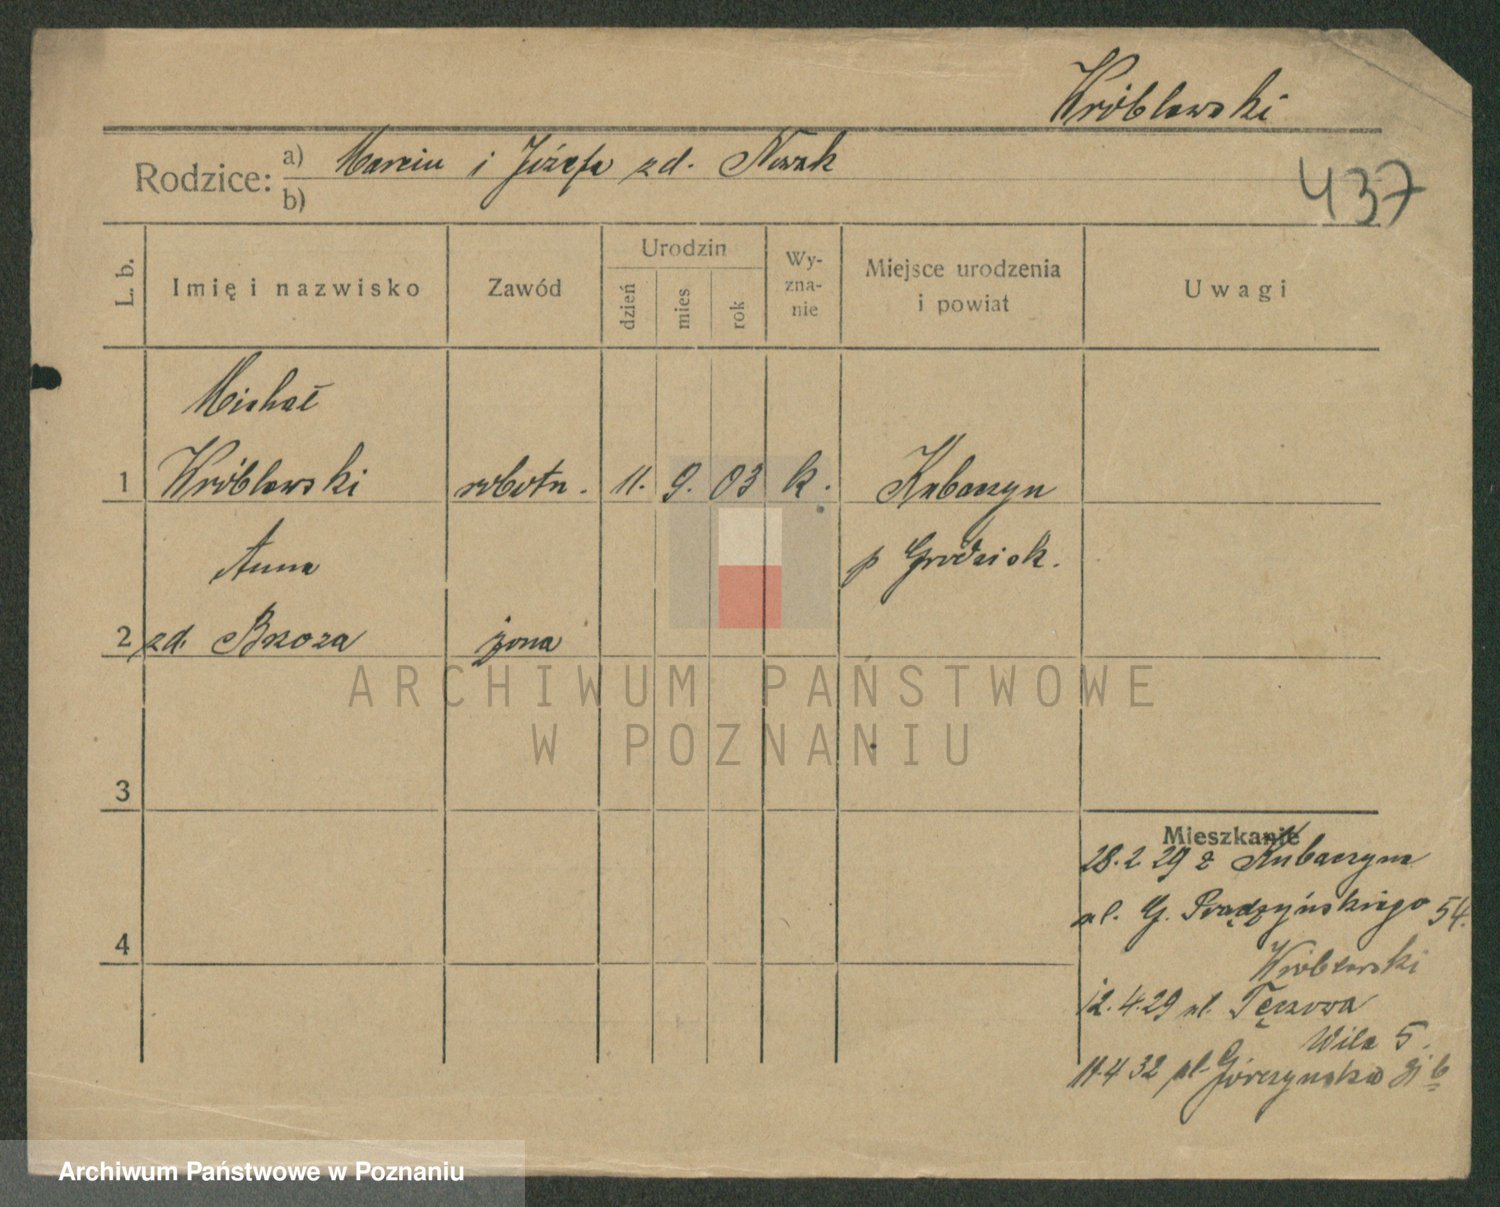 Wróblewski
Rodzice: a) Marcin i Józefa zd. Nowak
b)
437
L. b.
Imię i nazwisko
Zawód
Urodzin
dzień
mies
rok
Wy-
zna-
nie
Miejsce urodzenia
i powiat
Uwagi
Michał
1 Wróblewski robotn. 11. 9. 03 k. Kubaczyn
Anna p Grodzisk.
2 zd. Brzoza żona
3
4
Mieszkanie
28.2 29 z Kubaczyna
ul. G. Prądzyńskiego 54.
Wróblewski
12.4.29 ul. Tęczowa
Wila 5.
11.4 32 ul. Górczyńska
ARCHIWUM PAŃSTWOWE
W POZNANIU
Archiwum Państwowe w Poznaniu